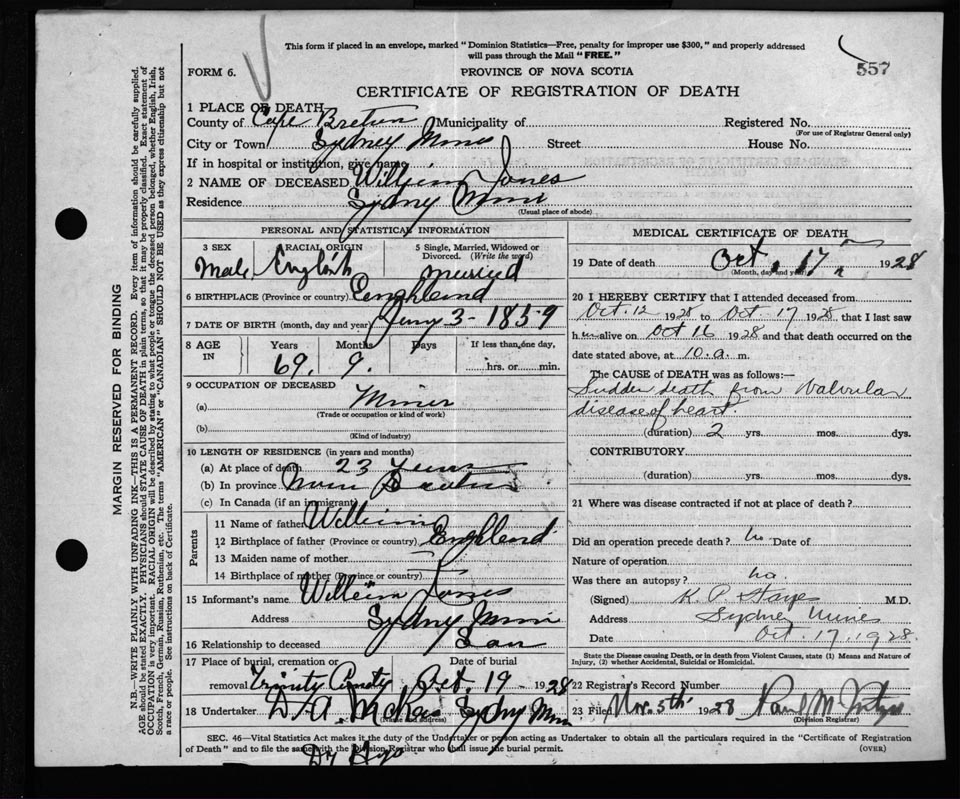 This form if placed in an envelope, marked "Dominion Statistics—Free, penalty for improper use $300," and properly addressed
will pass through the Mail "FREE."
557
FORM 6.
PROVINCE OF NOVA SCOTIA
CERTIFICATE OF REGISTRATION OF DEATH
1 PLACE OF DEATH
County of Cape Breton Municipality of Registered No.
(For use of Registrar General only)
City or Town Sydney Mines Street House No.
If in hospital or institution, give name
2 NAME OF DECEASED William Jones
Residence Sydney Mines
(Usual place of abode)
PERSONAL AND STATISTICAL INFORMATION
3 SEX RACIAL ORIGIN 5 Single, Married, Widowed or Divorced. (Write the word)
Male English married
6 BIRTHPLACE (Province or country) England
7 DATE OF BIRTH (month, day and year) Jany 3-1859
8 AGE IN Years Months Days If less than one day,
69. 9. hrs. or min.
9 OCCUPATION OF DECEASED
(a) Miner
(Trade or occupation or kind of work)
(b)
(Kind of industry)
10 LENGTH OF RESIDENCE (in years and months)
(a) At place of death 23 Years
(b) In province Nova Scotia
(c) In Canada (if an immigrant)
Parents
11 Name of father William
12 Birthplace of father (Province or country) England
13 Maiden name of mother —
14 Birthplace of mother (Province or country) —
15 Informant's name William Jones
Address Sydney Mines
16 Relationship to deceased Son
17 Place of burial, cremation or Date of burial
removal Trinity Oct. 19 - 1928
18 Undertaker D. A. Sydney Mines
(Name and address)
MEDICAL CERTIFICATE OF DEATH
19 Date of death Oct. 17, 1928
(Month, day and year)
20 I HEREBY CERTIFY that I attended deceased from
Oct. 12 1928 to Oct-17 1928 that I last saw
him alive on Oct 16 1928 and that death occurred on the
date stated above, at 10.a. m.
The CAUSE OF DEATH was as follows:—
Sudden death from Valvular
disease of heart.
(duration) 2 yrs. mos. dys.
CONTRIBUTORY
(duration) yrs. mos. dys.
21 Where was disease contracted if not at place of death?
Did an operation precede death? no Date of
Nature of operation
Was there an autopsy? no.
(Signed) K. P. Hayes M.D.
Address Sydney Mines
Date Oct. 17. 1928.
State the Disease causing Death, or in death from Violent Causes, state (1) Means and Nature of
Injury, (2) whether Accidental, Suicidal or Homicidal.
22 Registrar's Record Number
23 Filed Nov. 5th 1928
(Division Registrar)
SEC. 46—Vital Statistics Act makes it the duty of the Undertaker or person acting as Undertaker to obtain all the particulars required in the "Certificate of Registration
of Death" and to file the same with the Division Registrar who shall issue the burial permit.
(OVER)
MARGIN RESERVED FOR BINDING
N.B.—WRITE PLAINLY WITH UNFADING INK—THIS IS A PERMANENT RECORD. Every item of information should be carefully supplied.
AGE should be stated EXACTLY. PHYSICIANS should STATE CAUSE OF DEATH in plain terms, so that it may be properly classified. Exact statement of
OCCUPATION is very important. RACIAL ORIGIN will be described by stating to what people or tongue the deceased person belonged, whether English, Irish,
Scotch, French, German, Russian, Ruthenian, etc. The terms "AMERICAN" or "CANADIAN" SHOULD NOT BE USED as they express citizenship but not
a race or people. See instructions on back of Certificate.